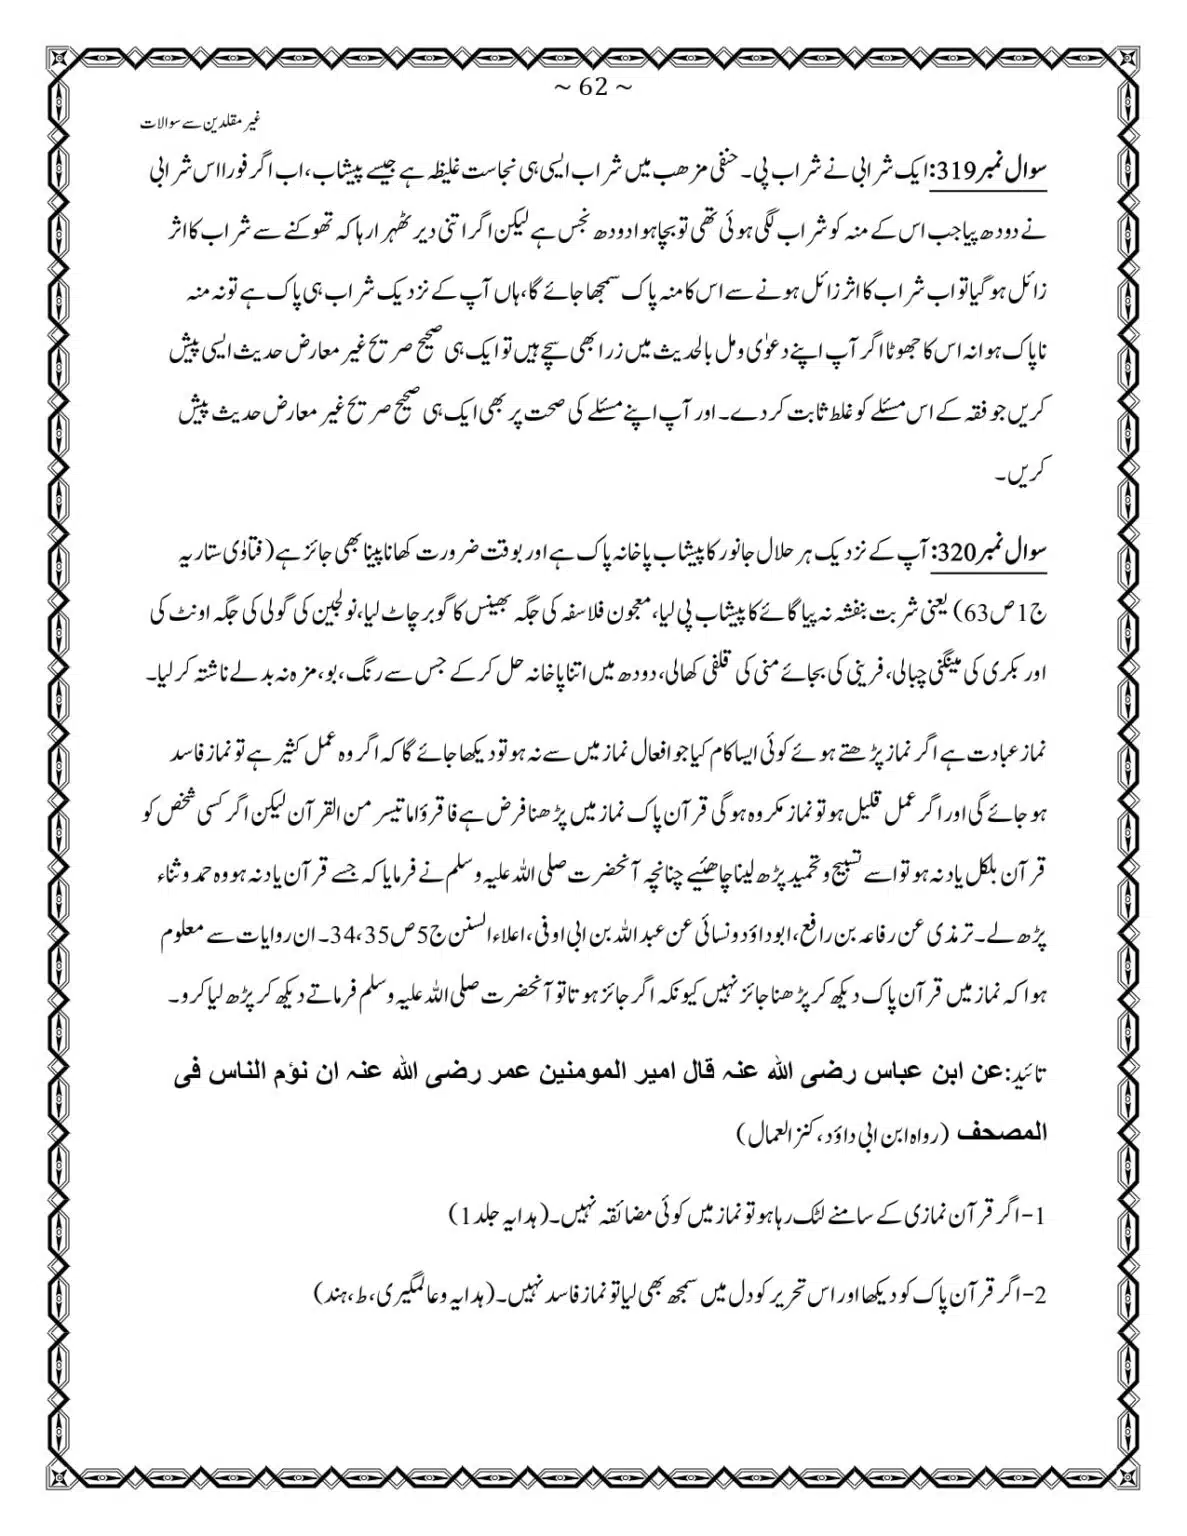 ~ 62 ~
غیر مقلدین سے سوالات
سوال نمبر319: ایک شرابی نے شراب پی۔ حنفی مزھب میں شراب ایسی ہی نجاست غلیظہ ہے جیسے پیشاب، اب اگر فورا اس شرابی
نے دودھ پیا جب اس کے منہ کو شراب لگی ہوئی تھی تو بچا ہوا دودھ نجس ہے لیکن اگر اتنی دیر ٹھہرا رہا کہ تھوکنے سے شراب کا اثر
زائل ہو گیا تو اب شراب کا اثر زائل ہونے سے اس کا منہ پاک سمجھا جائے گا، ہاں آپ کے نزدیک شراب ہی پاک ہے تو نہ منہ
ناپاک ہوا نہ اس کا جھوٹا اگر آپ اپنے دعوٰی ومل بالحدیث میں زرا بھی سچے ہیں تو ایک ہی صحیح صریح غیر معارض حدیث ایسی پیش
کریں جو فقہ کے اس مسئلے کو غلط ثابت کر دے۔ اور آپ اپنے مسئلے کی صحت پر بھی ایک ہی صحیح صریح غیر معارض حدیث پیش
کریں۔
سوال نمبر320: آپ کے نزدیک ہر حلال جانور کا پیشاب پاخانہ پاک ہے اور بوقت ضرورت کھانا پینا بھی جائز ہے( فتاوٰی ستاریہ
ج1ص63) یعنی شربت بنفشہ نہ پیا گائے کا پیشاب پی لیا، معجون فلاسفہ کی جگہ بھینس کا گوبر چاٹ لیا، نولجین کی گولی کی جگہ اونٹ کی
اور بکری کی مینگنی چبالی، فرینی کی بجائے منی کی قلفی کھالی، دودھ میں اتنا پاخانہ حل کر کے جس سے رنگ، بو، مزہ نہ بدلے ناشتہ کر لیا۔
نماز عبادت ہے اگر نماز پڑھتے ہوئے کوئی ایسا کام کیا جو افعال نماز میں سے نہ ہو تو دیکھا جائے گا کہ اگر وہ عمل کثیر ہے تو نماز فاسد
ہو جائے گی اور اگر عمل قلیل ہو تو نماز مکروہ ہو گی قرآن پاک نماز میں پڑھنا فرض ہے فاقرؤا ماتیسر من القرآن لیکن اگر کسی شخص کو
قرآن بلکل یاد نہ ہو تو اسے تسبیح وتحمید پڑھ لینا چاھئیے چنانچہ آنحضرت صلی اللہ علیہ وسلم نے فرمایا کہ جسے قرآن یاد نہ ہو وہ حمد وثناء
پڑھ لے۔ ترمذی عن رفاعہ بن رافع، ابوداؤد ونسائی عن عبداللہ بن ابی اوفی، اعلاء السنن ج5ص34،35۔ ان روایات سے معلوم
ہوا کہ نماز میں قرآن پاک دیکھ کر پڑھنا جائز نہیں کیونکہ اگر جائز ہوتا تو آنحضرت صلی اللہ علیہ وسلم فرماتے دیکھ کر پڑھ لیا کرو۔
تائید: عن ابن عباس رضی اللہ عنہ قال امیر المومنین عمر رضی اللہ عنہ ان نؤم الناس فی
المصحف (رواہ ابن ابی داؤد، کنزالعمال)
1-اگر قرآن نمازی کے سامنے لٹک رہا ہو تو نماز میں کوئی مضائقہ نہیں۔( ہدایہ جلد1)
2-اگر قرآن پاک کو دیکھا اور اس تحریر کو دل میں سمجھ بھی لیا تو نماز فاسد نہیں۔(ہدایہ وعالمگیری، ط، ہند)